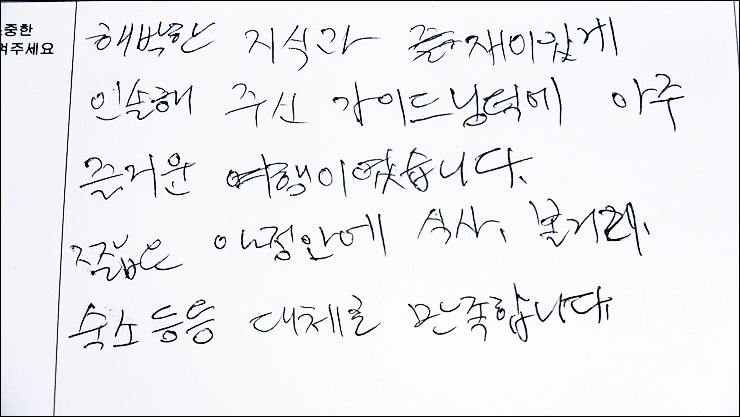 중한
겨주세요
해박한 지식과 재미있게
인솔해 주신 가이드님덕에 아주
즐거운 여행이었습니다.
짧은 일정안에 식사, 볼거리,
숙소등등 대체로 만족합니다.